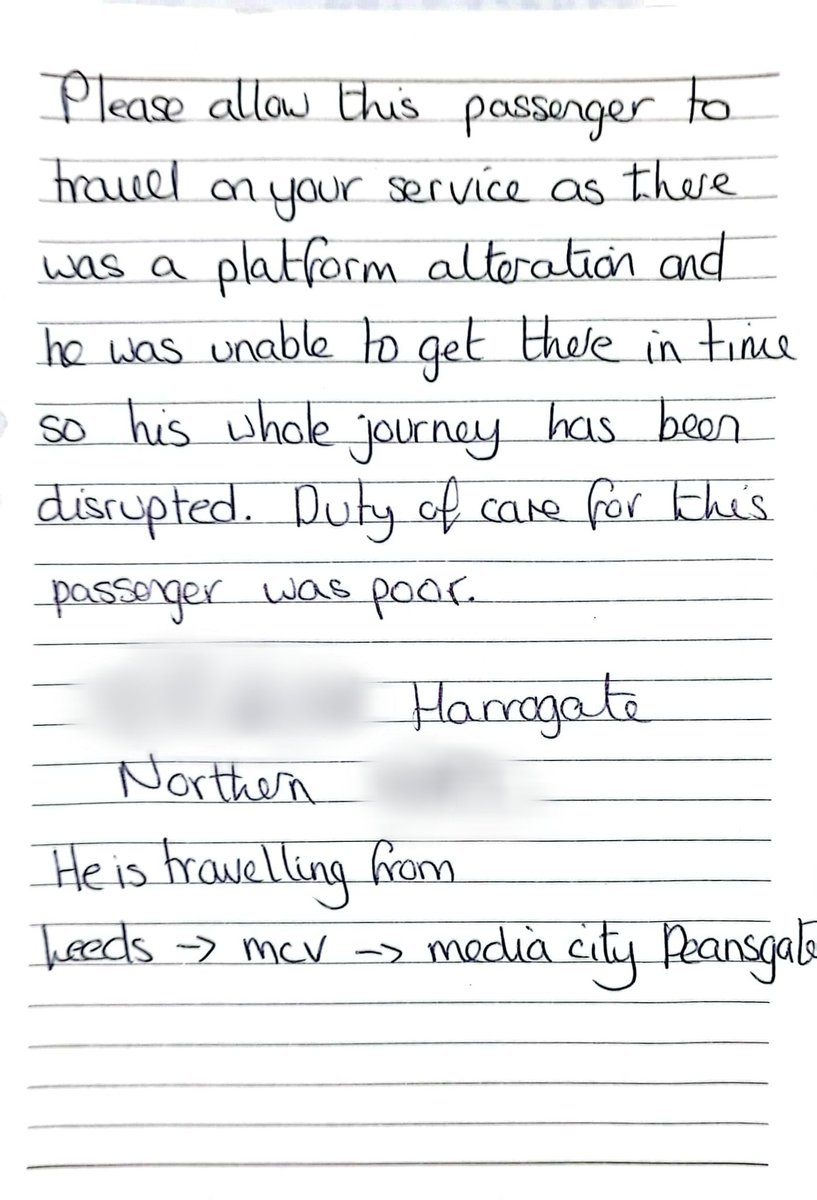 Please allow this passenger to
travel on your service as there
was a platform alteration and
he was unable to get there in time
so his whole journey has been
disrupted. Duty of care for this
passenger was poor.
Harrogate
Northern
He is travelling from
Leeds → mcv → media city Deansgate